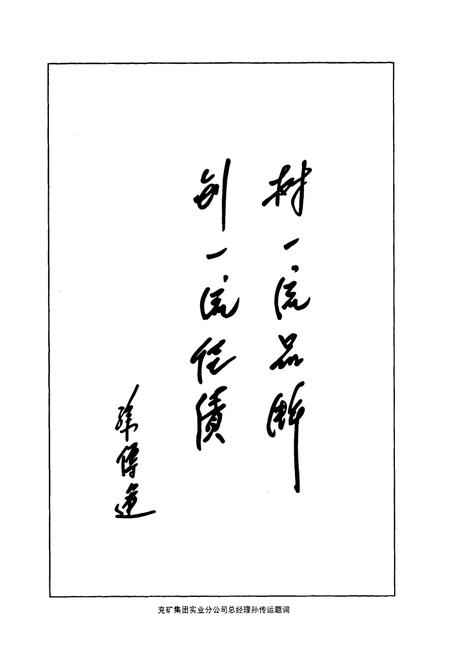 树一流品牌
创一流佳绩
孫傳運
兖矿集团实业分公司总经理孙传运题词